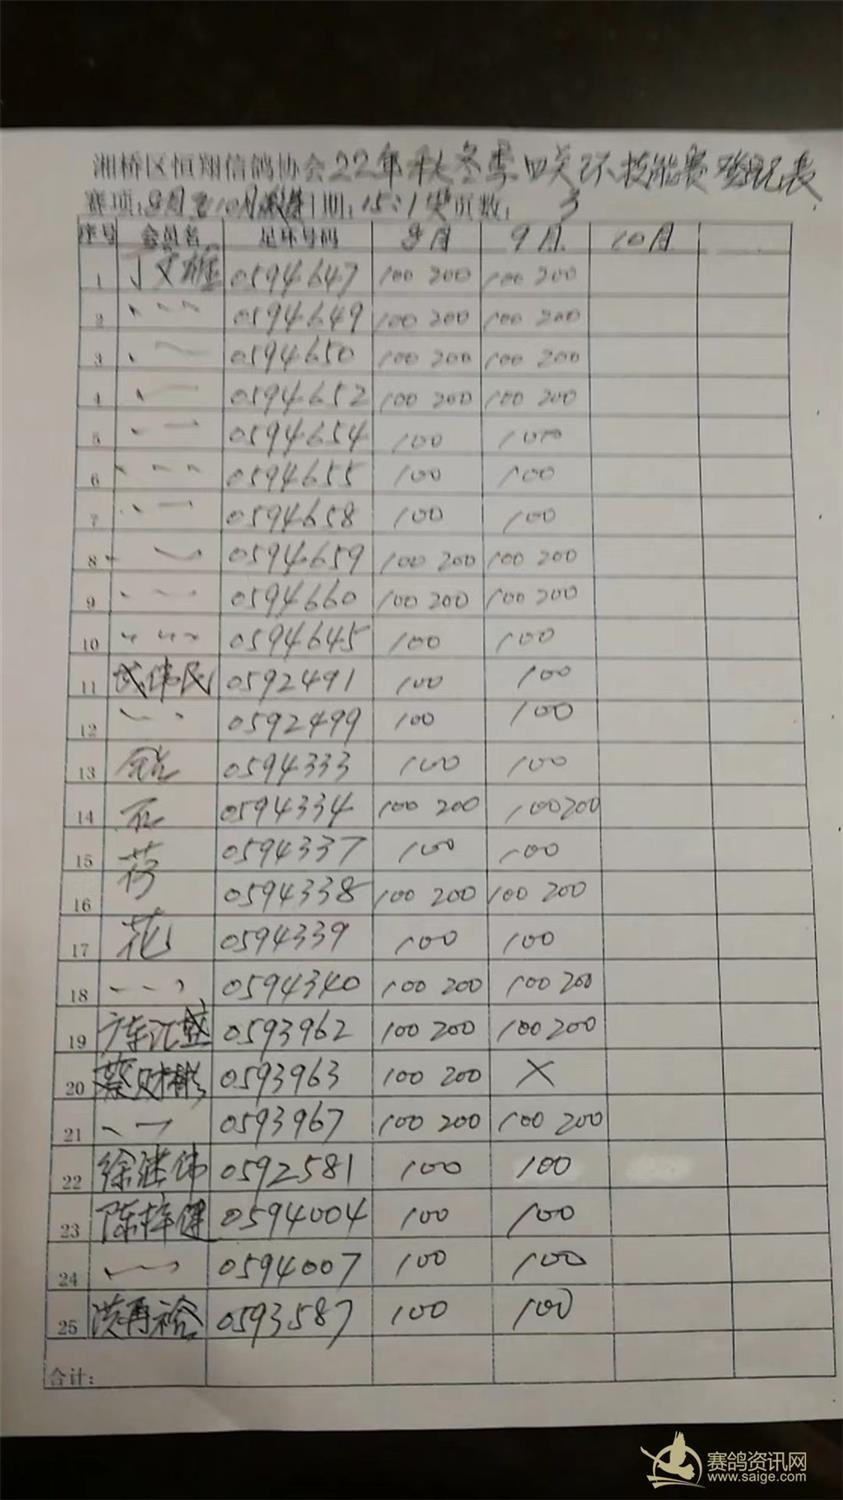 湘桥区恒翔信鸽协会22年秋冬季四关环技能赛登记表
赛项:8月至10月 日期:15:1 页数: 3
序号 会员名 足环号码 8月 9月 10月
1 丁文雄 0594647 100 200 100 200
2 、、、 0594649 100 200 100 200
3 、一 0594650 100 200 100 200
4 、一 0594652 100 200 100 200
5 、一 0594654 100 100
6 、、、 0594655 100 100
7 、一 0594658 100 100
8 、、 0594659 100 200 100 200
9 、、、 0594660 100 200 100 200
10 、、、 0594645 100 100
11 伟民 0592491 100 100
12 、、、 0592499 100 100
13 0594333 100 100
14 石 0594334 100 200 100 200
15 荷 0594337 100 100
16 0594338 100 200 100 200
17 花 0594339 100 100
18 、、、 0594340 100 200 100 200
19 广东汇盛 0593962 100 200 100 200
20 蔡财彬 0593963 100 200 ×
21 、一 0593967 100 200 100 200
22 徐洪伟 0592581 100 100
23 陈梓健 0594004 100 100
24 、一 0594007 100 100
25 洪再裕 0593587 100 100
合计:
赛鸽资讯网
www.saige.com